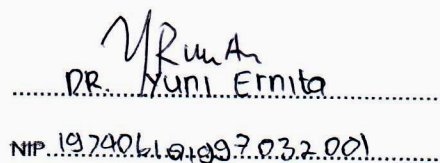 DR. Yuni Ernita
NIP. 197406191997032001